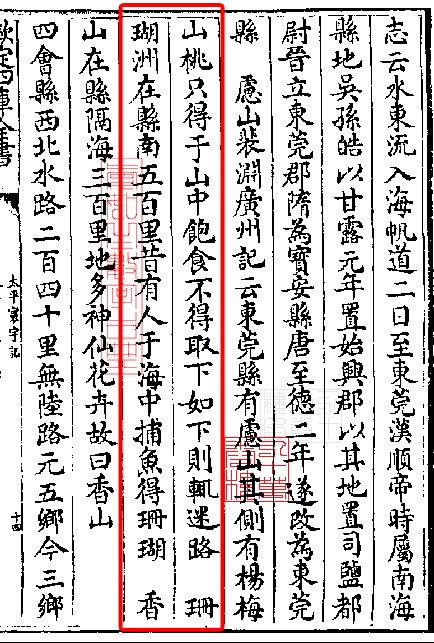 志云水東流入海帆道二日至東莞漢順帝時屬南海
縣地吳孫皓以甘露元年置始興郡以其地置司鹽都
尉晉立東莞郡隋為寳安縣唐至徳二年遂改為東莞
縣　慮山裴淵廣州記云東莞縣有慮山其側有楊梅
山桃只得于山中飽食不得取下如下則輒迷路　珊
瑚洲在縣南五百里昔有人于海中捕魚得珊瑚　香
山在縣隔海三百里地多神仙花卉故曰香山
四會縣西北水路二百四十里無陸路元五鄉今三鄉
欽定四庫全書
太平寰宇記
十四